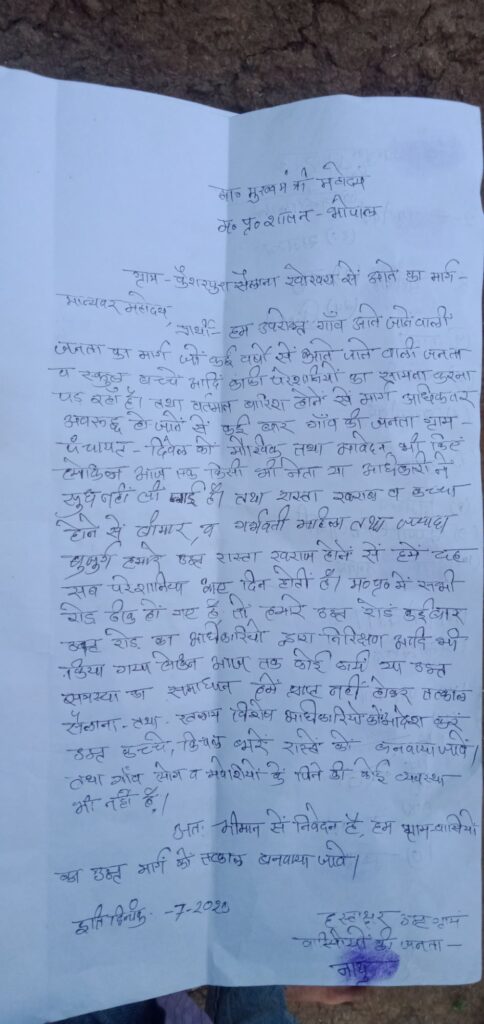 मा० मुख्यमंत्री महोदय
म० प्र० शासन - भोपाल
ग्राम - सैलाना से आने का मार्ग -
मान्यवर महोदय,
प्रार्थी - हम उपरोक्त गाँव आते जाते वाली
जनता का मार्ग जो कई वर्षो से आते जाते वाली जनता
व स्कुल बच्चे आदि काफी परेशानियों का सामना करना
पड रहा है। तथा वर्तमान बारिश होने से मार्ग अधिकतर
अवरूद्ध हो जाने से कई बार गाँव की जनता ग्राम -
पंचायत - को मौखिक तथा आवेदन भी किए
लेकिन आज तक किसी भी नेता या अधिकारी ने
सुध नहीं ली है। तथा रास्ता खराब व कच्चा
होने से बीमार, व गर्भवती महिला तथा
बुजुर्ग हमारे उक्त रास्ता खराब होने से हमे यह
सब परेशानिया आए दिन होती है। म० प्र० में सभी
रोड ठीक हो गए है तो हमारे उक्त रोड कईबार
उक्त रोड का अधिकारियो द्वारा निरिक्षण आदि भी
किया गया लेकिन आज तक कोई कार्य या उक्त
समस्या का समाधान हमें प्राप्त नहीं होकर तत्काल
सैलाना - तथा रतलाम विशेष अधिकारियों को आदेश कर
उक्त कच्चे, किचड भरे रास्ते को बनवाया जावें।
तथा गाँव लोग व मवेशियो के पिने की कोई व्यवस्था
भी नहीं है।
अतः श्रीमान से निवेदन है, हम ग्राम वासियो
का उक्त मार्ग को तत्काल बनवाया जावे।
इति दिनांक -7-2020
हस्ताक्षर उक्त ग्राम
वासियों की जनता -